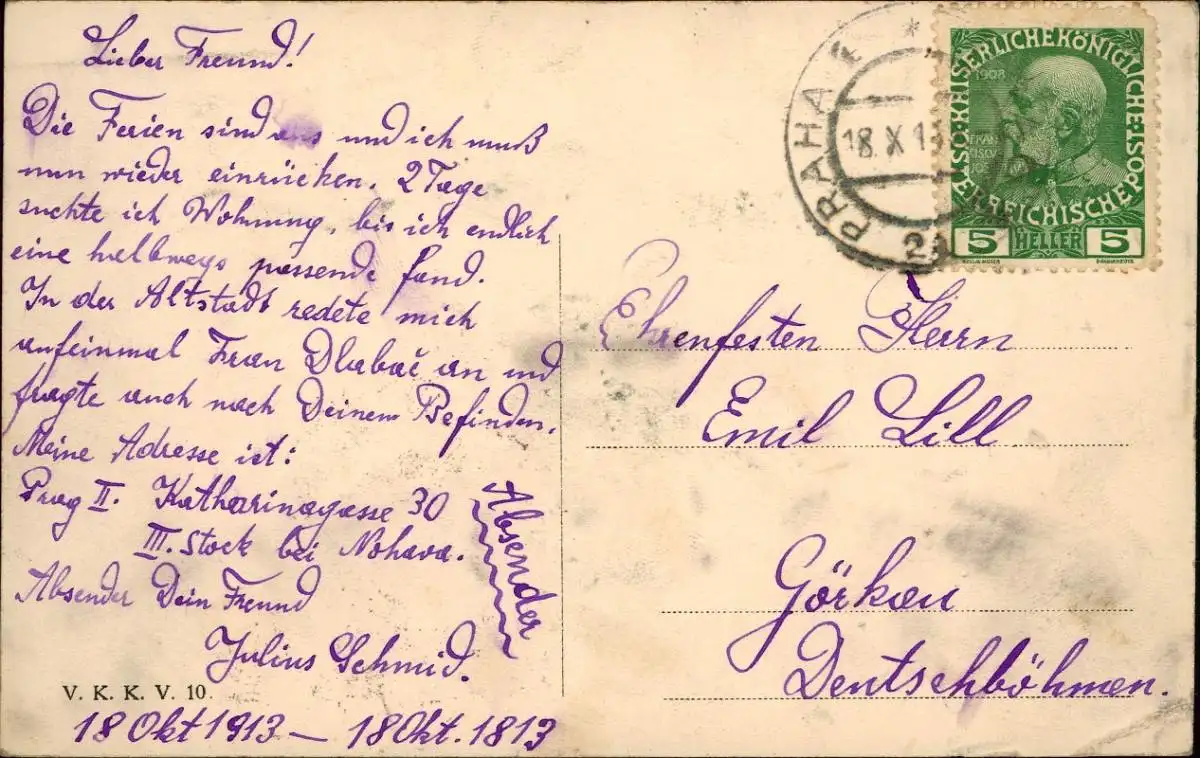 Lieber Freund!
Die Ferien sind aus und ich muß
nun wieder einrücken. 2 Tage
suchte ich Wohnung, bis ich endlich
eine halbwegs passende fand.
In der Altstadt redete mich
aufeinmal Frau Dlabač an und
fragte auch nach Deinem Befinden.
Meine Adresse ist:
Prag II. Katharinagasse 30
III. Stock bei Nohava.
Absender Dein Freund
Julius Schmid.
Absender
V. K. K. V. 10.
18 Okt 1913 — 18 Okt. 1813
PRAHA
18. X 13
KAISERLICHE KÖNIGLICHE
ÖSTERREICHISCHE POST
1908
5 HELLER 5
Ehrenfesten Herrn
Emil Lill
Görkau
Deutschböhmen.